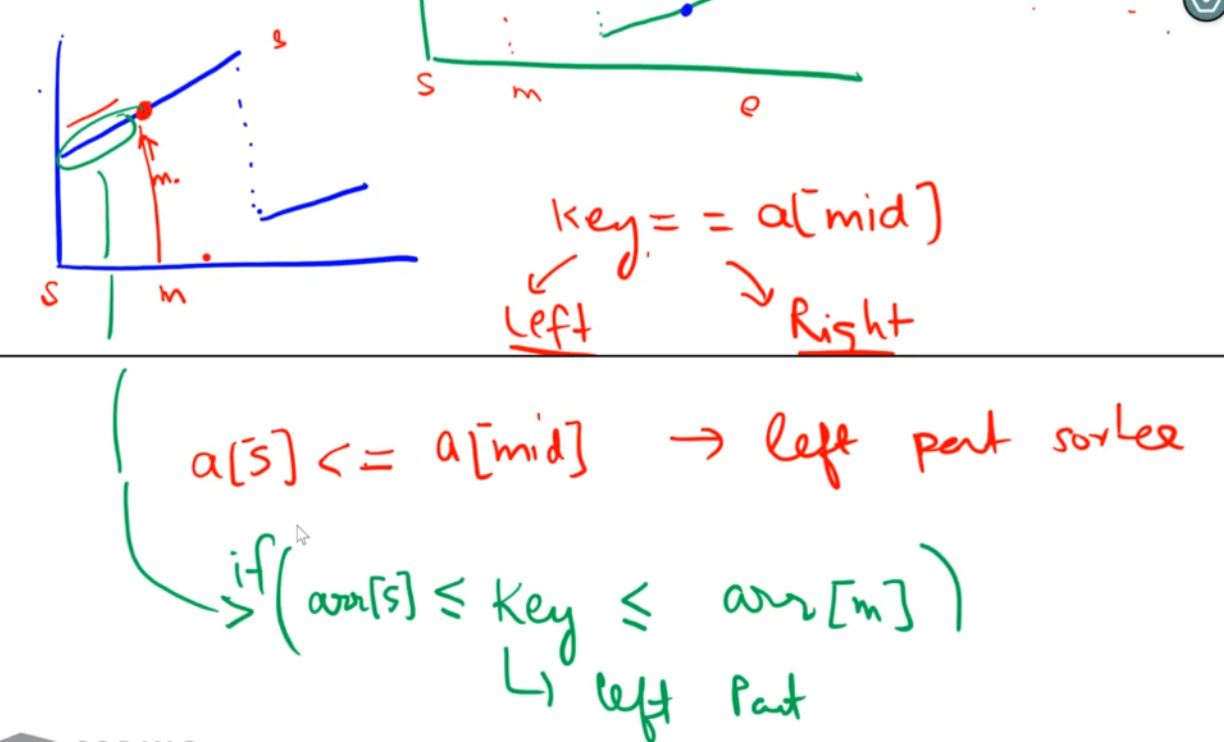 s
s m e
m.
key == a[mid]
s m
Left Right
a[s] <= a[mid] → left part sorted
if(arr[s] ≤ key ≤ arr[m])
↳ left Part